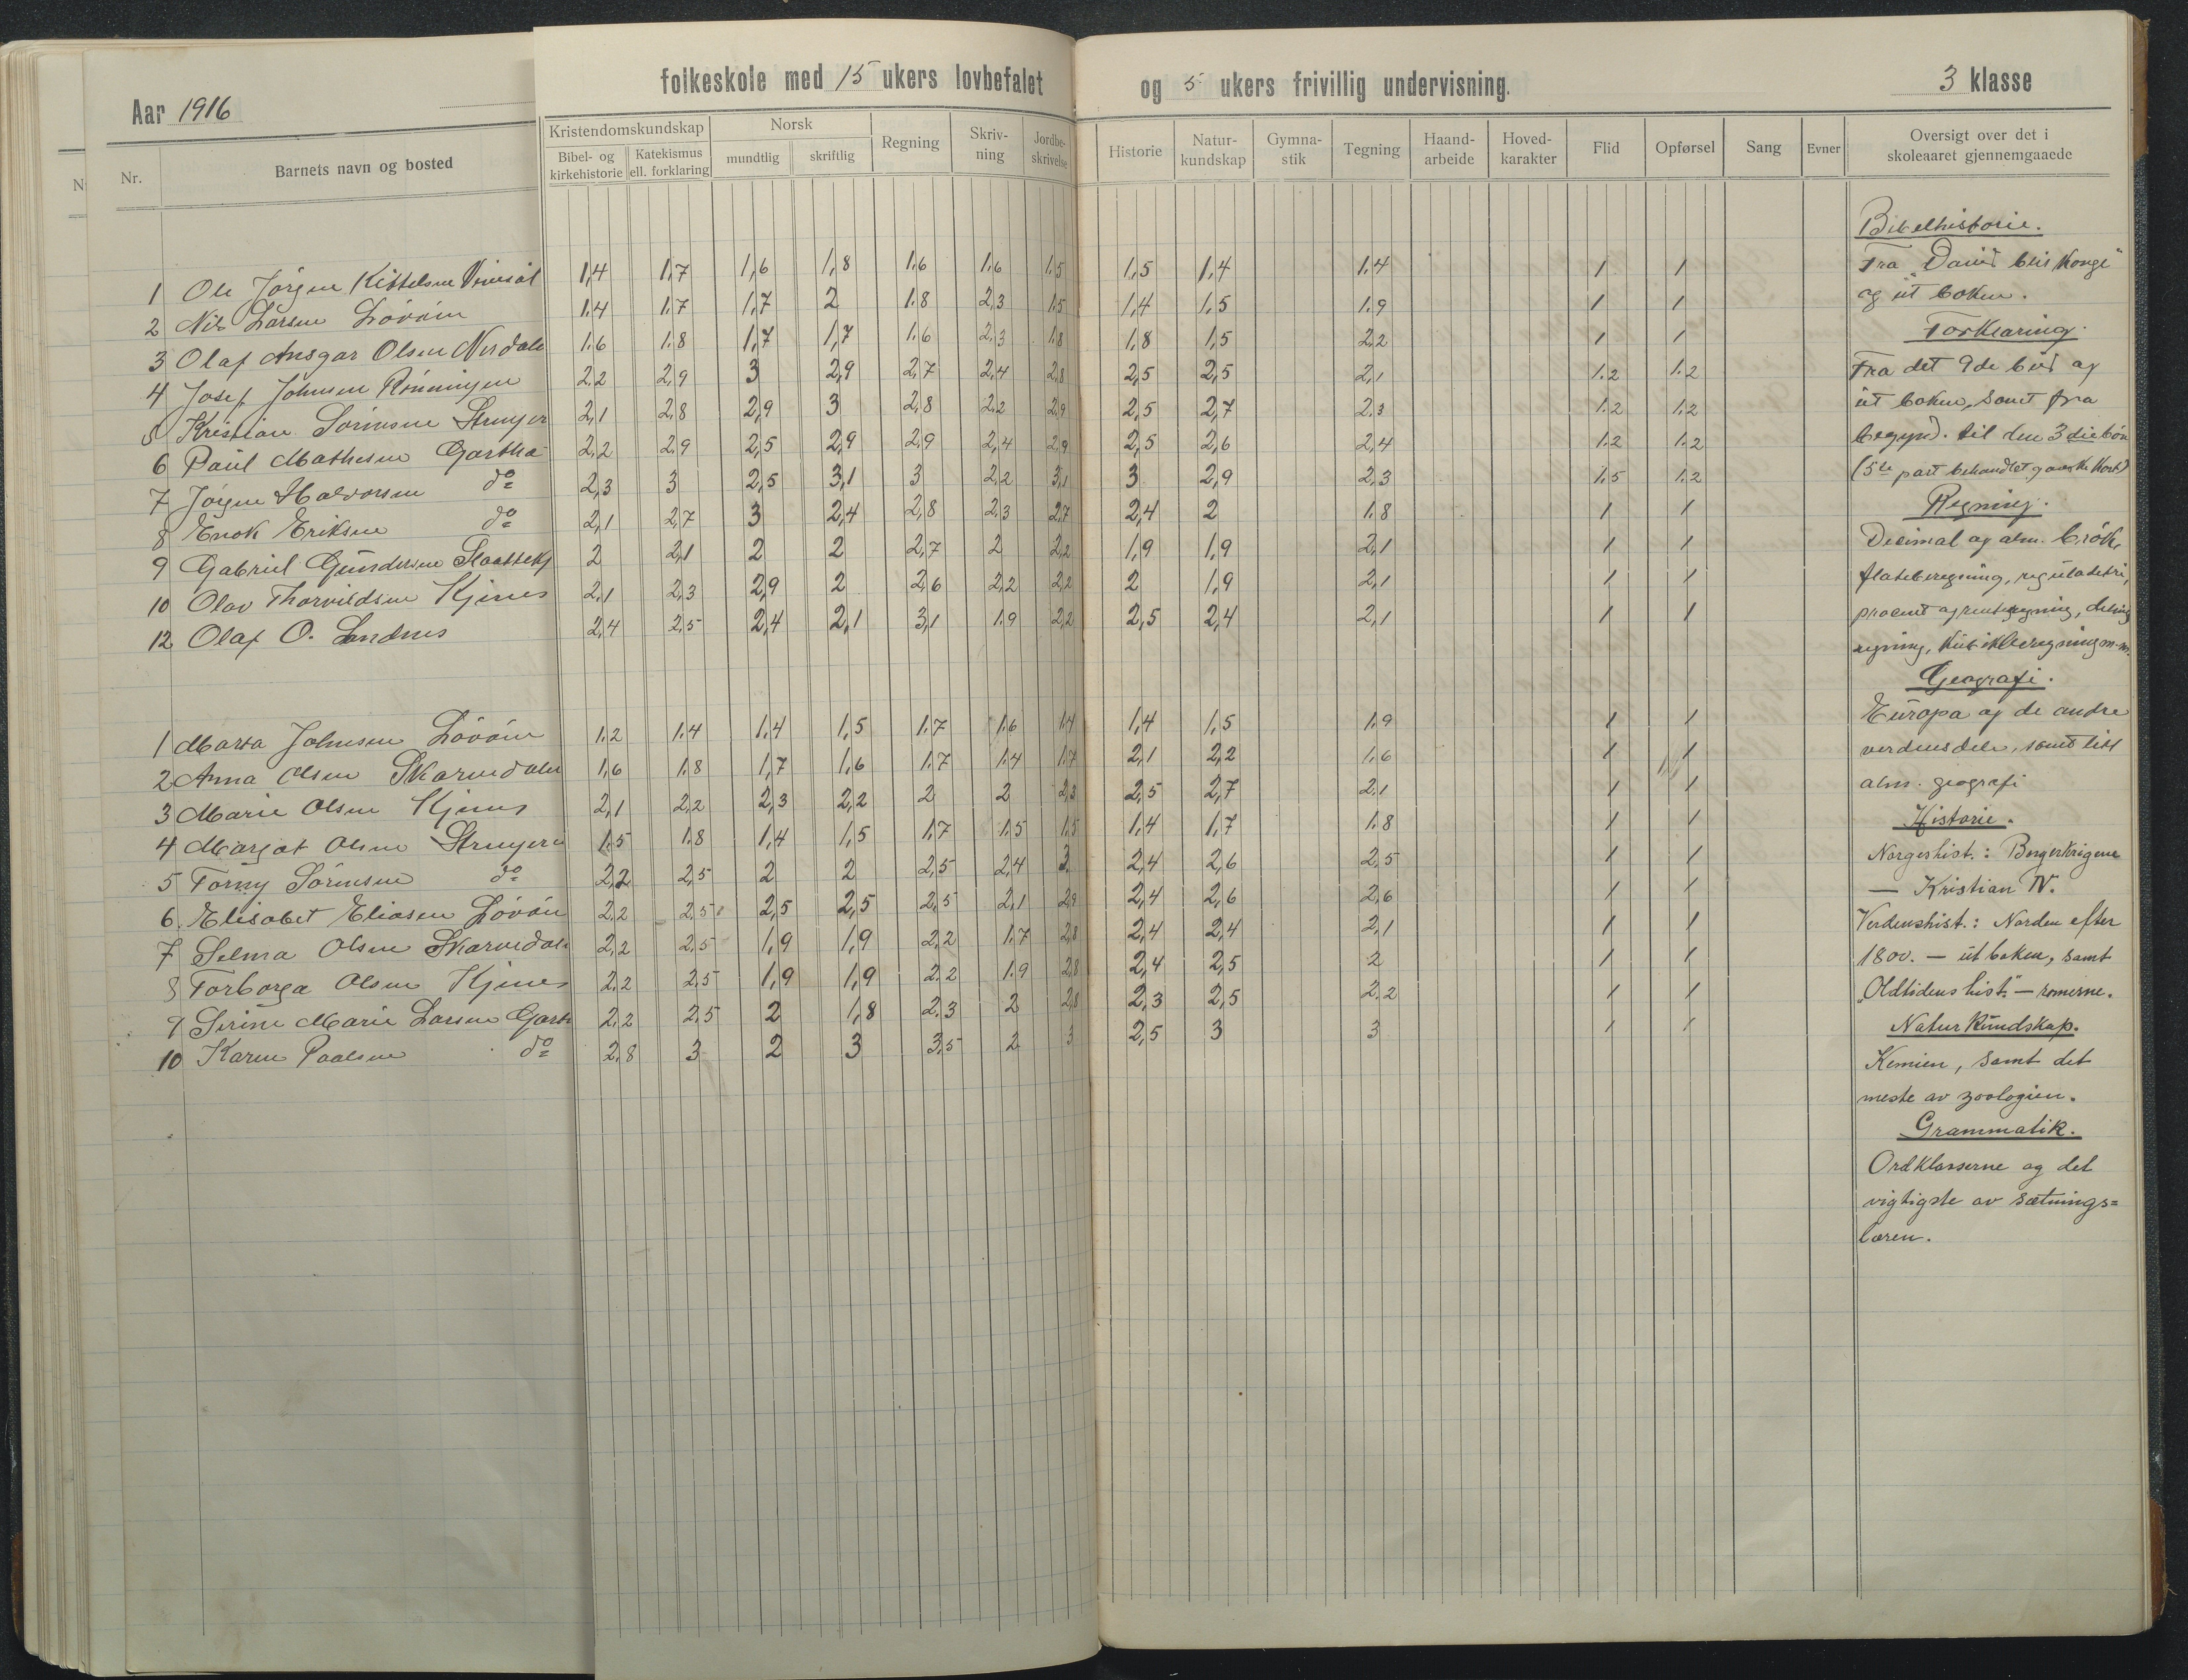 Aar 1916
folkeskole med 15 ukers lovbefalet og 5 ukers frivillig undervisning. 3 klasse
Nr. Barnets navn og bosted Kristendomskundskap Bibel- og kirkehistorie Katekismus ell. forklaring Norsk mundtlig skriftlig Regning Skriv-ning Jordbe-skrivelse Historie Natur-kundskap Gymna-stik Tegning Haand-arbeide Hoved-karakter Flid Opførsel Sang Evner Oversigt over det i skoleaaret gjennemgaaede
1 Ole Jörgen Kittelsen 1,4 1,7 1,6 1,8 1.6 1.6 1.5 1,5 1.4 1.4 1 1
2 Nils Larsen Lövåsen 1.4 1.7 1,7 2 1.8 2,3 1.5 1,4 1,5 1.9 1 1
3 Olaf Ansgar Olsen 1.6 1.8 1,7 1,7 1.6 2,3 1.8 1,8 1,5 2.2 1 1
4 Josef Johnsen Rönningen 2.2 2,9 3 2,9 2.7 2,4 2,8 2,5 2,5 2,1 1.2 1.2
5 Kristian Sörensen 2,1 2,8 2,9 3 2,8 2,2 2,9 2,5 2,7 2.3 1.2 1.2
6 Paul Mathesen Gartha 2,2 2.9 2,5 2,9 2.9 2,4 2,9 2,5 2,6 2,4 1.2 1.2
7 Jörgen Halvorsen do 2,3 3 2,5 3,1 3 2,2 3,1 3 2,9 2,3 1.5 1.2
8 Enok Eriksen do 2,1 2,7 3 2,4 2,8 2.3 2,7 2,4 2 1.8 1 1
9 Gabriel Gundersen 2 2,1 2 2 2,7 2 2,2 1,9 1,9 2,1 1 1
10 Olav Thorvildsen Kjenes 2,1 2,3 2,9 2 2,6 2,2 2,2 2 1,9 2,1 1 1
12 Olaf O. Landnes 2,4 2,5 2,4 2,1 3,1 1.9 2,2 2,5 2,4 2,1 1 1
1 Marta Johnsen Lövåsen 1.2 1.4 1.4 1,5 1.7 1.6 1.4 1,4 1,5 1.9 1 1
2 Anna Olsen Skarvedalen 1,6 1.8 1,7 1,6 1.7 1.4 1.7 2,1 2,2 1.6 1 1
3 Marie Olsen Kjenes 2,1 2,2 2,3 2,2 2 2 2,3 2,5 2,7 2.1 1 1
4 Margot Olsen 1.5 1.8 1,4 1,5 1.7 1.5 1.5 1.4 1,7 1.8 1 1
5 Torny Sörensen do 2,2 2,5 2 2 2,5 2,4 3 2,4 2,6 2.5 1 1
6. Elisabet Eliasen Lövåsen 2,2 2,5 2,5 2,5 2,5 2,1 2,9 2,4 2,6 2,6 1 1
7 Selma Olsen Skarvedalen 2,2 2,5 1,9 1,9 2,2 1.7 2,8 2,4 2,4 2,1 1 1
8 Torborga Olsen Kjenes 2,2 2,5 1,9 1,9 2.2 1.9 2,8 2,4 2,5 2 1 1
9 Serine Marie Larsen Garth 2,2 2.5 2 1,8 2.3 2 2,8 2,3 2,5 2.2 1 1
10 Karen Paalsen do 2,8 3 2 3 3,5 2 3 2,5 3 3 1 1
Bibelhistorie.
Fra "David blir konge"
og ut boken.
Forklaring.
Fra det 9de bud og
ut boken, samt fra
begynd. til den 3die bön
(5te part behandlet ganske kort)
Regning.
Decimal og alm. brök,
flateberegning, reguladetri,
procent og renteregning, delings
regning, kubikberegning m.m.
Geografi.
Europa og de andre
verdensdele, samt litt
alm. geografi
Historie.
Norgeshist.: Borgerkrigene
— Kristian IV.
Verdenshist.: Norden efter
1800. — ut boken, samt
"Oldtidens hist." — romerne.
Naturkundskap.
Kemien, samt det
meste av zoologien.
Grammatik.
Ordklasserne og det
vigtigste av sætnings=
læren.